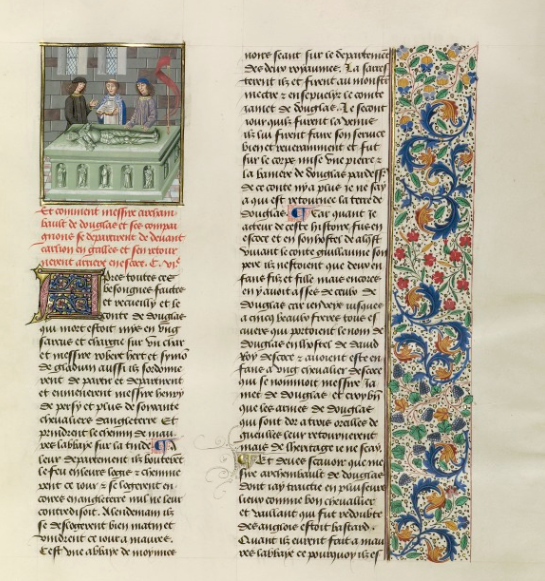 Et comment messire archam
bault de douglas et ses compai
gnons se departirent de deuant
carlion en galles et sen retour
nerent arriere en escoce. C. viie
Apres toutes ces
besongnes faictes
et recueilly et le
conte de douglas
qui mort estoit mys en vng
sarcus et chargie sur vn char
et messire robert hert et symo
de gladuin aussi ilz sordonne
rent de partir et departirent
et emmenerent messire henry
de persy et plus de soixante
cheualiers dangleterre Et
prindrent le chemin de mau
ros labbaye sur la tuide A
leur departement ilz bouterent
le feu en leurs logis et chemine
rent ce iour et se logerent en
cores en angleterre nul ne leur
contredisoit. Alendemain ilz
se deslogerent bien matin et
vindrent ce iour a mauros.
Cest vne abbaye de moynnes
noirs seant sur le departement
des deux royaumes. La sarres
terent ilz et furent au monstr
mectre et enseuelir le conte
iames de douglas. Le second
iour quilz furent la venus
ilz lui firent faire son seruice
bien et reueramment et fut
sur le corps mise vne pierre et
la baniere de douglas pardess9
de ce conte ny a plus ie ne scay
a qui est retournee la terre de
douglas. Car quant Je
acteur de ceste histoire fus en
escoce et en son hostel de alquest
viuant le conte guillaume son
pere ilz nestoient que deux en
fans filz et fille mais encores
en y auoit asses de ceulx de
douglas car ien vey iusques
a cincq beaulx freres tous es
cuiers qui portoient le nom de
douglas en lhostel de dauid
Roy descoce et auoient este en
fans a vng cheualier descoce
qui se nommoit messire Ja
mes de douglas et croy bn
que les armes de douglas
qui sont dor a trois oreilles de
gueulles leur retournerent
mais de lheritage ie ne scay.
Et deues scauoir que me
sire archembault de douglas
dont iay traictie en pluseurs
lieux comme bon cheuallier
et vaillant qui fut redoubte
des anglois estoit bastard.
Quant ilz eurent fait a mau
ros labbaye ce pourquoy ilz es